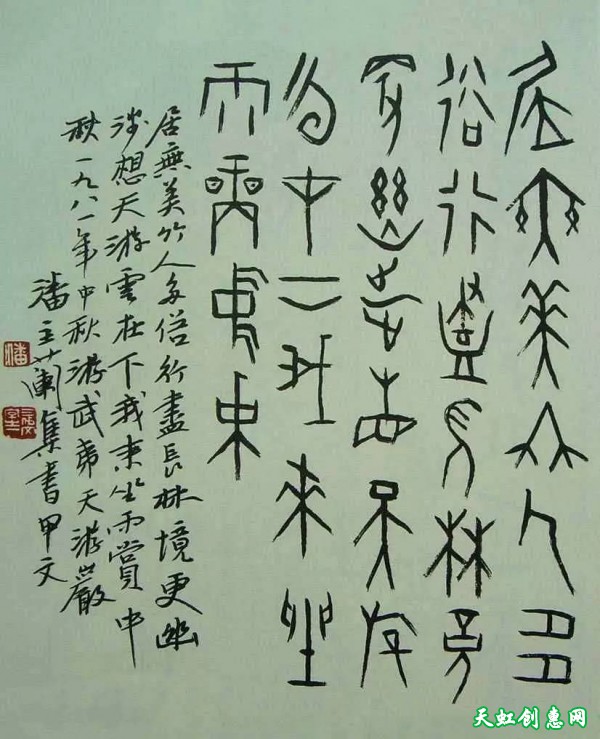 居無美竹人多
俗行盡長林境
更幽涉想天游
雲在下我來坐
雨賞中秋
居無美竹人多俗行盡長林境更幽
涉想天游雲在下我來坐雨賞中
秋一九八一年中秋游武夷天游巖
潘主蘭集書甲文
潘
天虹创惠网